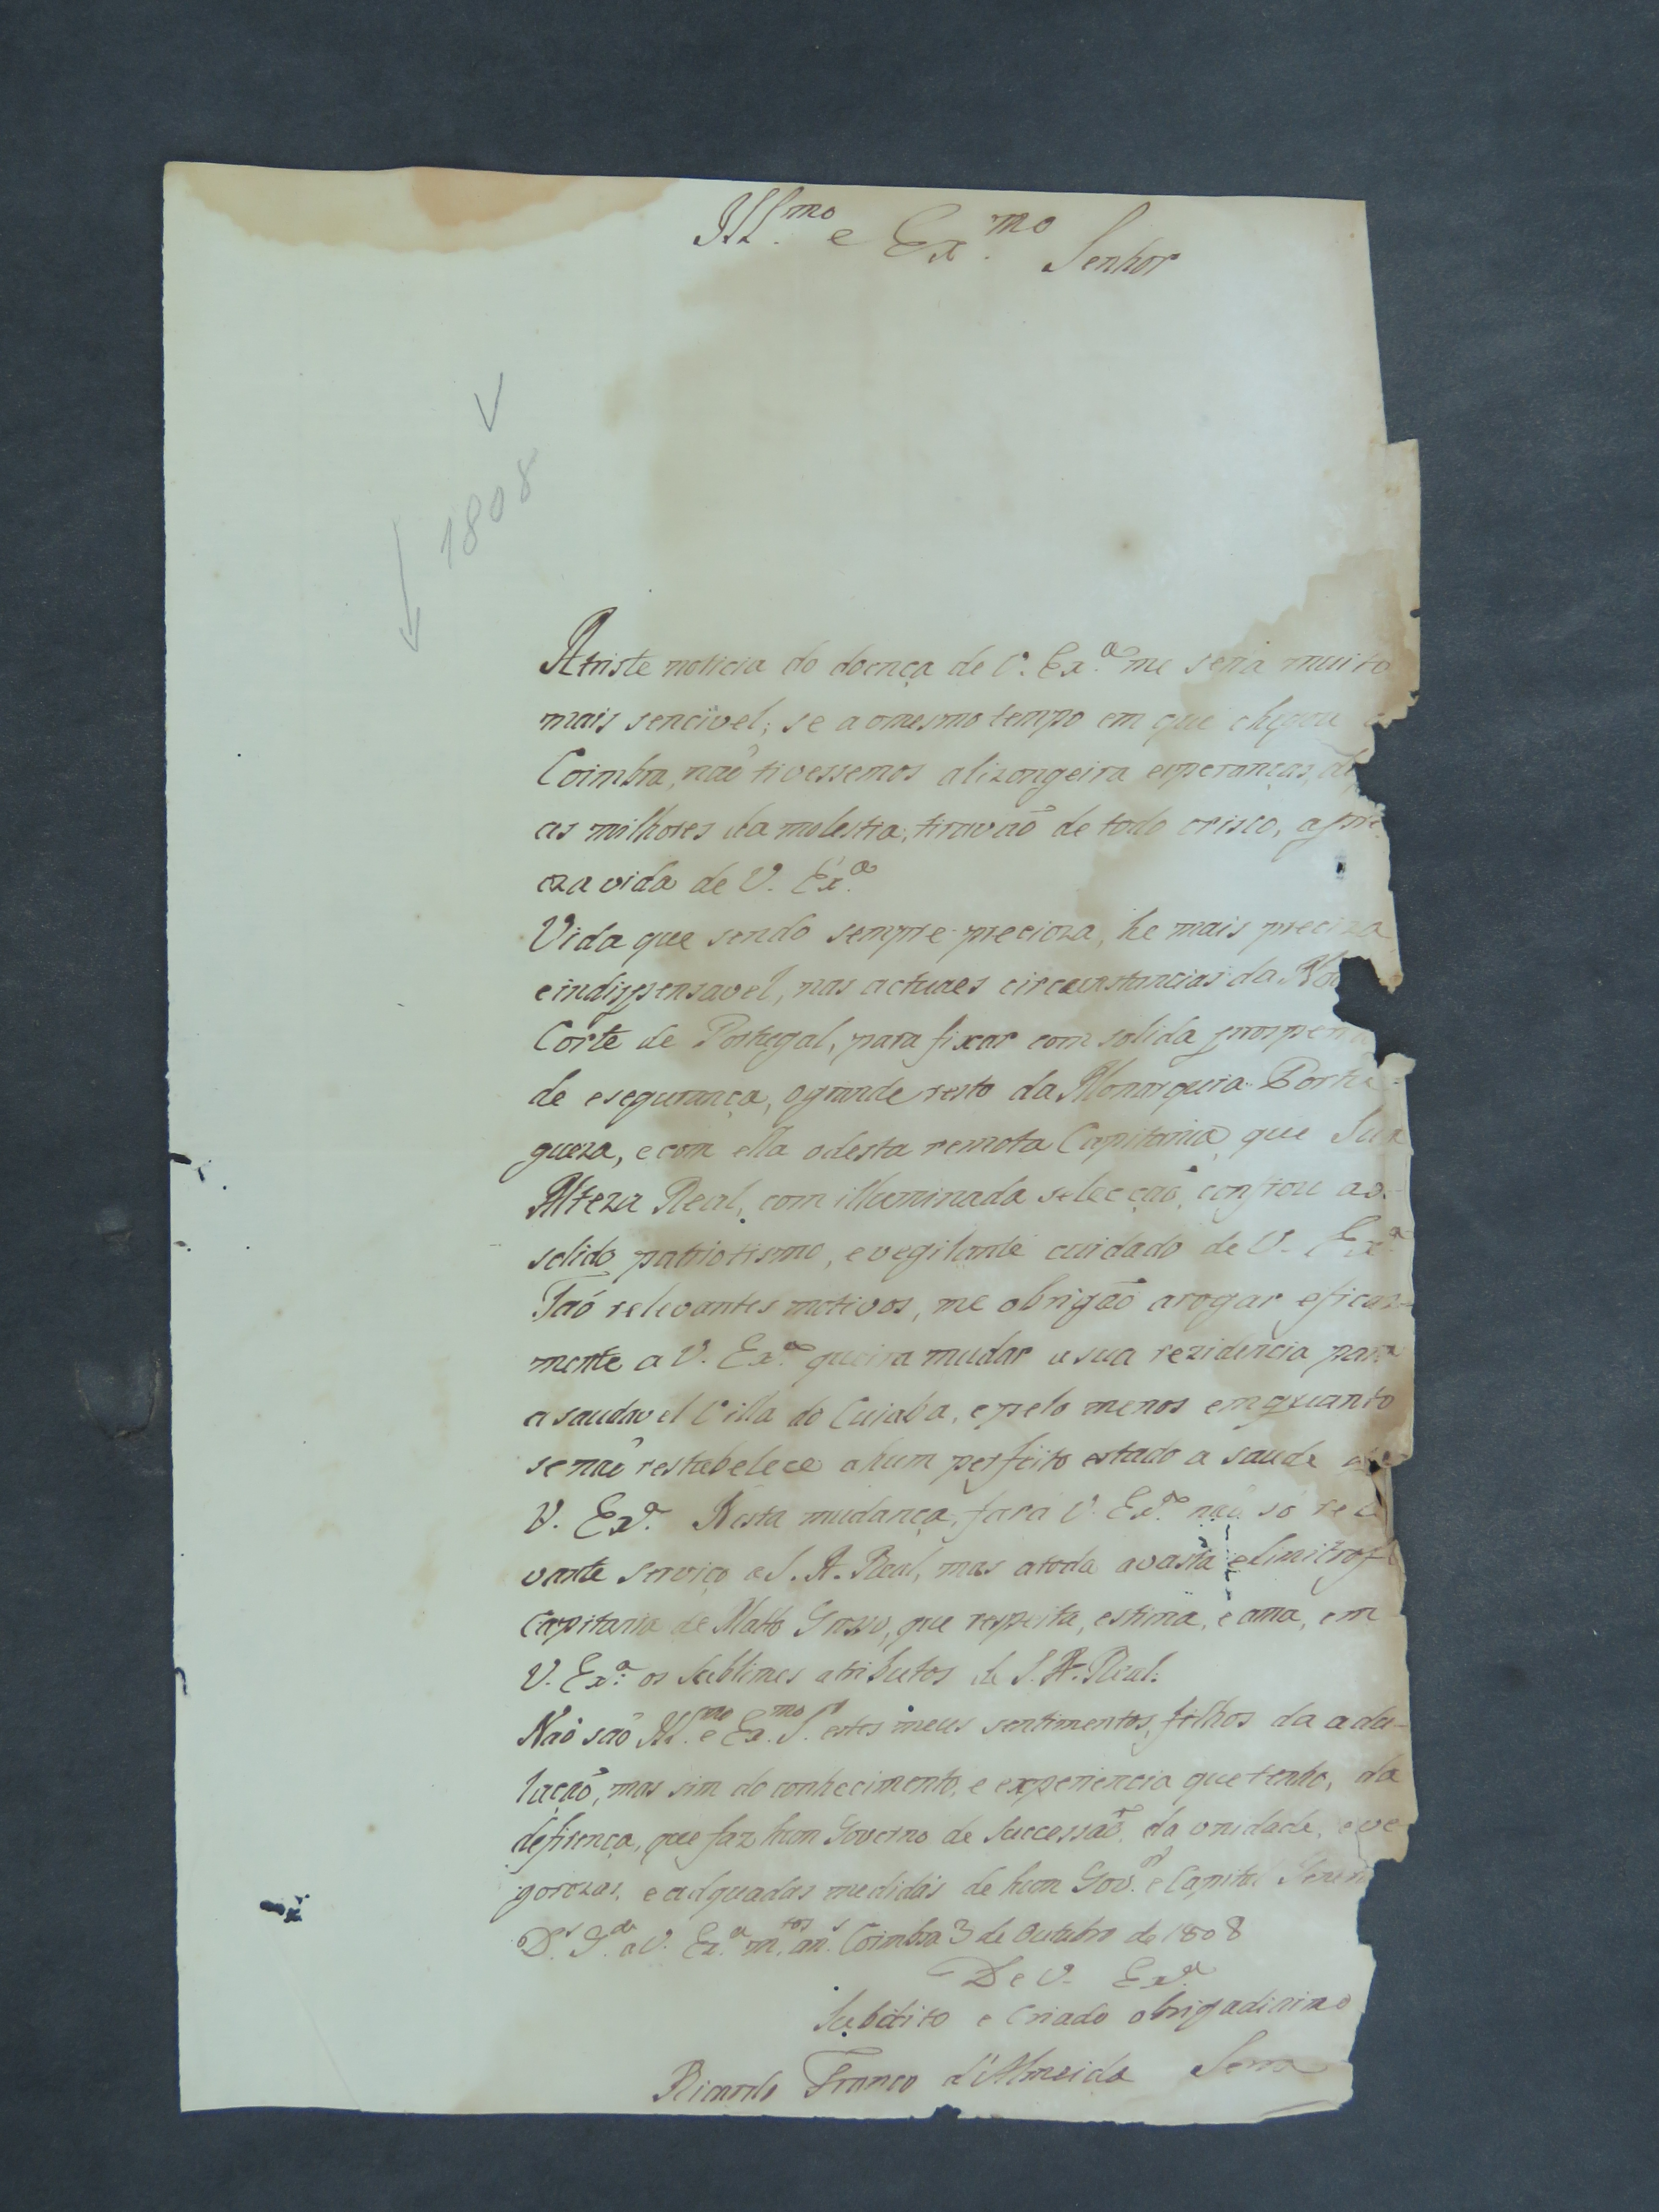 Ill.mo e Ex.mo Senhor
1808
A triste noticia do doença de V. Ex.a me seria muito
mais sencivel; se ao mesmo tempo em que chegou a
Coimbra, naõ tivessemos alizongeira esperanças,
as milhores da molestia, tiravaõ de todo orisco, apre
oza vida de V. Ex.a
Vida que sendo sempre precioza, he mais preciza
eindispensavel, nas actuaes circunstancias da
Corte de Portugal, para fixar com solida prosperi
de esegurança, ogrande resto da Monarquia Portu=
gueza, ecom ella odesta remota Capitania, que Sua
Alteza Real, com illuminada selecçaõ, confiou ao
solido patriotismo, evegilante cuidado de V. Ex.a
Taõ relevantes motivos, me obrigaõ arogar eficaz-
mente a V. Ex.a queira mudar a sua rezidencia para
a saudavel Villa do Cuiaba, epelo menos emquanto
senaõ restabelece ahum perfeito estado a saude de
V. Ex.a Nesta mudança, fará V. Ex.a naõ só rele
vante serviço aS. A. Real, mas atoda avasta elimitrofe
Capitania de Matto Grosso, que respeita, estima, e ama, em
V. Ex.a os Sublimes atributos de S. A. Real.
Naõ saõ Ill.mo e Ex.mo S.r estes meus sentimentos, filhos da adu-
laçaõ, mas sim do conhecimento, e experiencia que tenho, da
defirença, que faz hum Governo de Successaõ, da unidade, eve
gorozas, e adquadas medidas de hum Gov.or e Capitaõ Gener
D.s G.de a V. Ex.a m.tos an.s Coimbra 3 de Outubro de 1808
De V. Ex.a
Subdito e Criado obrigadisimo
Ricardo Franco d'Almeida Serra